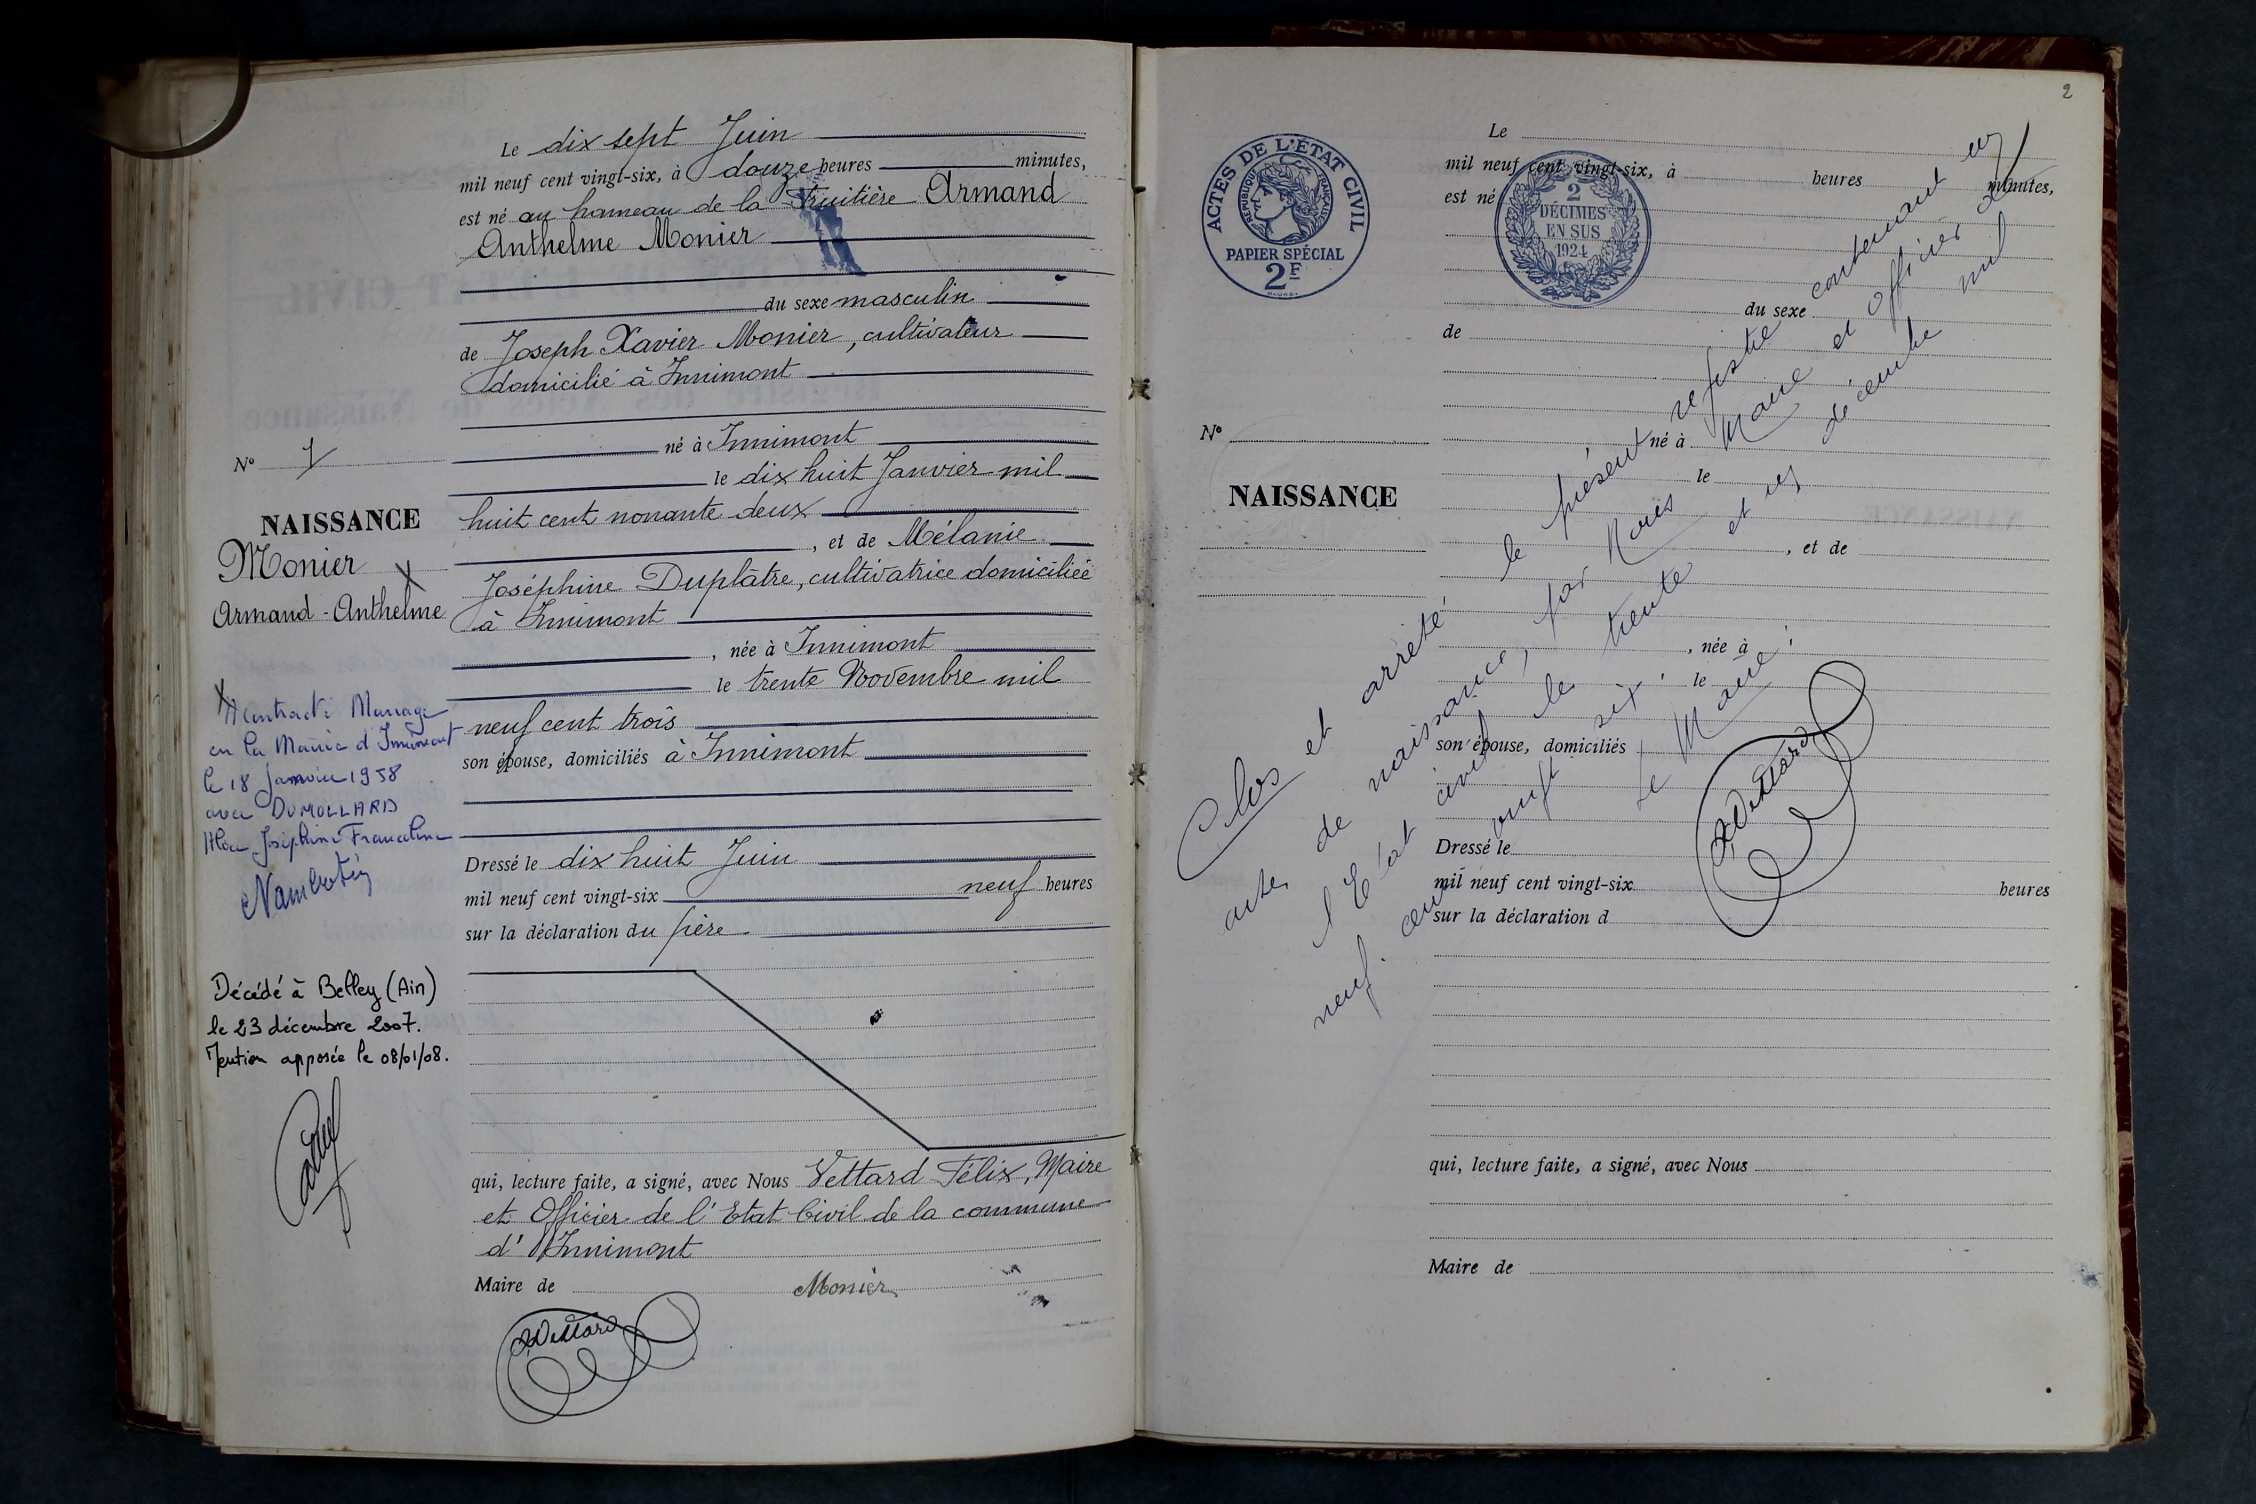 Le dix sept Juin
mil neuf cent vingt-six, à douze heures minutes,
est né au hameau de la Fruitière Armand
Anthelme Monier
du sexe masculin
de Joseph Xavier Monier, cultivateur
domicilié à Innimont
né à Innimont
le dix huit Janvier mil
huit cent nonante deux
, et de Mélanie
Joséphine Duplâtre, cultivatrice domiciliée
à Innimont
, née à Innimont
le trente Novembre mil
neuf cent trois
son épouse, domiciliés à Innimont
Dressé le dix huit Juin
mil neuf cent vingt-six neuf heures
sur la déclaration du père
qui, lecture faite, a signé, avec Nous Vettard Félix, Maire
et Officier de l'Etat Civil de la commune
d'Innimont
Maire de Monier
Vettard
N° 1
NAISSANCE
Monier
Armand-Anthelme
X
X A contracté Mariage
en la Mairie d'Innimont
le 18 Janvier 1958
avec DUMOLLARD
Joséphine Franceline
Décédé à Belley (Ain)
le 23 décembre 2007.
Mention apposée le 08/01/08.
2
ACTES DE L'ÉTAT CIVIL
RÉPUBLIQUE FRANÇAISE
PAPIER SPÉCIAL
2F
2
DÉCIMES
EN SUS
1924
Le
mil neuf cent vingt-six, à heures minutes,
est né
du sexe
de
né à
le
, et de
, née à
le
son épouse, domiciliés
Dressé le
mil neuf cent vingt-six heures
sur la déclaration d
qui, lecture faite, a signé, avec Nous
Maire de
N°
NAISSANCE
Clos et arrêté le présent registre contenant un
acte de naissance, par Nous Maire et Officier de
l'Etat civil le trente et un décembre mil
neuf cent vingt six.
Le Maire:
Vettard